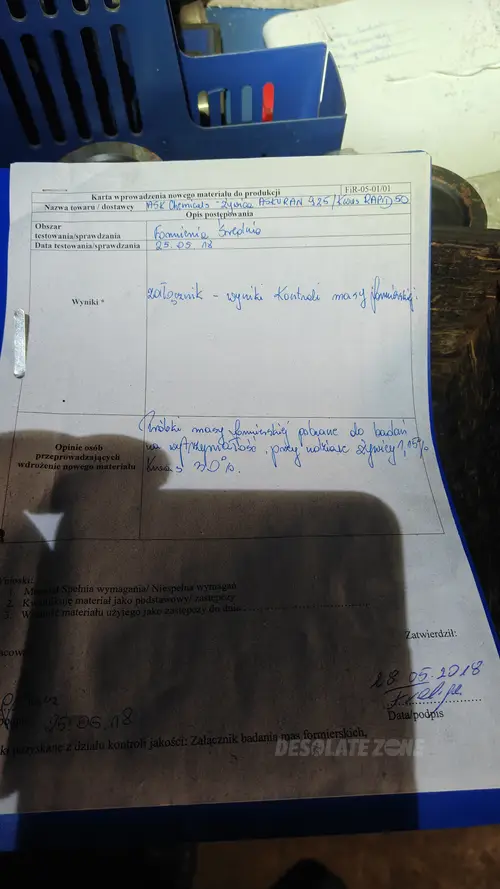 Karta wprowadzenia nowego materiału do produkcji
FiR-05-01/01
Nazwa towaru / dostawcy
ASK Chemicals - Żywica ASKURAN 925 / Kwas RAPID 50
Opis postępowania
Obszar
testowania/sprawdzania
Formiernia Średnia
Data testowania/sprawdzania
25.05.18
Wyniki *
załącznik - wyniki Kontroli masy formierskiej.
Opinie osób
przeprowadzających
wdrożenie nowego materiału
Próbki masy formierskiej pobrane do badań
na wytrzymałość, przy nastawie żywicy 1,15%
Kwas 30%.
1. Materiał Spełnia wymagania/ Niespełna wymagań
2. Kwalifikuję materiał jako podstawowy/ zastępczy
3. materiału użytego jako zastępczy do dnia
Zatwierdził:
28.05.2018
Data/podpis
25.05.18
pozyskane z działu kontroli jakości: Załącznik badania mas formierskich,
DESOLATE ZONE